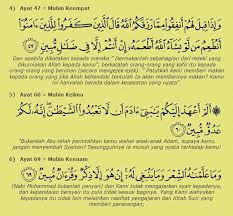 4) Ayat 47 = Mubin Keempat
وَإِذَا قِيلَ لَهُمْ أَنفِقُوا مِمَّا رَزَقَكُمُ اللَّهُ قَالَ الَّذِينَ كَفَرُوا لِلَّذِينَ ءَامَنُوٓا
أَنُطْعِمُ مَن لَّوْ يَشَآءُ اللَّهُ أَطْعَمَهُۥٓ إِنْ أَنتُمْ إِلَّا فِى ضَلَٰلٍ مُّبِينٍ ٤٧
Dan apabila dikatakan kepada mereka: " Dermakanlah sebahagian dari rezeki yang
dikurniakan Allah kepada kamu", berkatalah orang-orang yang kafir itu kepada
orang-orang yang beriman (secara mengejek-ejek): " Patutkah kami memberi makan
kepada orang yang jika Allah kehendaki tentulah Ia akan memberinya makan? Kamu
ini hanyalah berada dalam kesesatan yang nyata"
5) Ayat 60 = Mubin Kelima
أَلَمْ أَعْهَدْ إِلَيْكُمْ يَٰبَنِىٓ ءَادَمَ أَن لَّا تَعْبُدُوا الشَّيْطَٰنَ إِنَّهُۥ لَكُمْ
عَدُوٌّ مُّبِينٌ ٦٠
"Bukankah Aku telah perintahkan kamu wahai anak-anak Adam, supaya kamu
jangan menyembah Syaitan? Sesungguhnya ia musuh yang nyata terhadap kamu!
6) Ayat 69 = Mubin Keenam
وَمَا عَلَّمْنَٰهُ الشِّعْرَ وَمَا يَنۢبَغِى لَهُۥٓ إِنْ هُوَ إِلَّا ذِكْرٌ وَقُرْءَانٌ مُّبِينٌ
٦٩
(Nabi Muhammad bukanlah penyair) dan Kami tidak mengajarkan syair kepadanya,
dan kepandaian bersyair itu pula tidak sesuai baginya. Yang Kami wahyukan
kepadanya itu tidak lain melainkan nasihat pengajaran dan Kitab Suci yang
memberi penerangan.